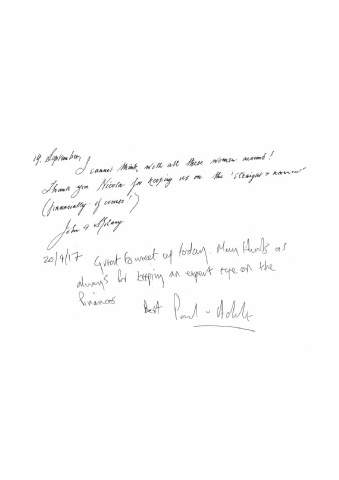 19. September,
I cannot think with all these women around!
Thank you Nicola for keeping us on the 'straight & narrow'
(financially - of course!)
John &
20/9/17 Great to meet up today. Many thanks as
always for keeping an expert eye on the
finances
Best Paul